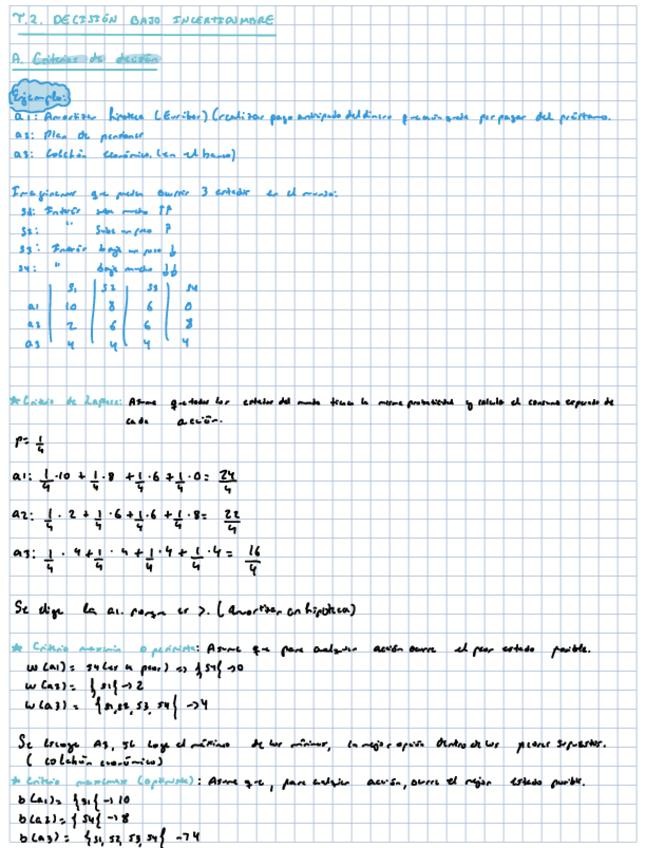 T.2. DECISIÓN BAJO INCERTIDUMBRE
A. Criterios de decisión
Ejemplo:
a1: Amortizar hipoteca (Euribor) (realizar pago anticipado del dinero que aún queda por pagar del préstamo.
a2: Plan de pensiones
a3: Colchón económico. (en el banco)
Imaginemos que pueden ocurrir 3 estados en el mundo:
S1: Interés sube mucho ↑↑
S2: " Sube un poco ↑
S3: Interés baja un poco ↓
S4: " baja mucho ↓↓
S1 S2 S3 S4
a1 10 8 6 0
a2 2 6 6 8
a3 4 4 4 4
* Criterio de Laplace: Asume que todos los estados del mundo tienen la misma probabilidad y calcula el consumo esperado de
cada acción.
P= 1/4
a1: 1/4 · 10 + 1/4 · 8 + 1/4 · 6 + 1/4 · 0 = 24/4
a2: 1/4 · 2 + 1/4 · 6 + 1/4 · 6 + 1/4 · 8 = 22/4
a3: 1/4 · 4 + 1/4 · 4 + 1/4 · 4 + 1/4 · 4 = 16/4
Se elige la a1. porque es >. (Amortizar hipoteca)
* Criterio maximin o pesimista: Asume que para cualquier acción ocurre el peor estado posible.
w(a1)= S4 (es la peor) => {S4} → 0
w(a2)= {S1} → 2
w(a3)= {S1, S2, S3, S4} → 4
Se escoge A3, se coge el máximo de los mínimos, la mejor opción dentro de los peores supuestos.
(colchón económico)
* Criterio maximax (optimista): Asume que, para cualquier acción, ocurre el mejor estado posible.
b(a1)= {S1} → 10
b(a2)= {S4} → 8
b(a3)= {S1, S2, S3, S4} → 4